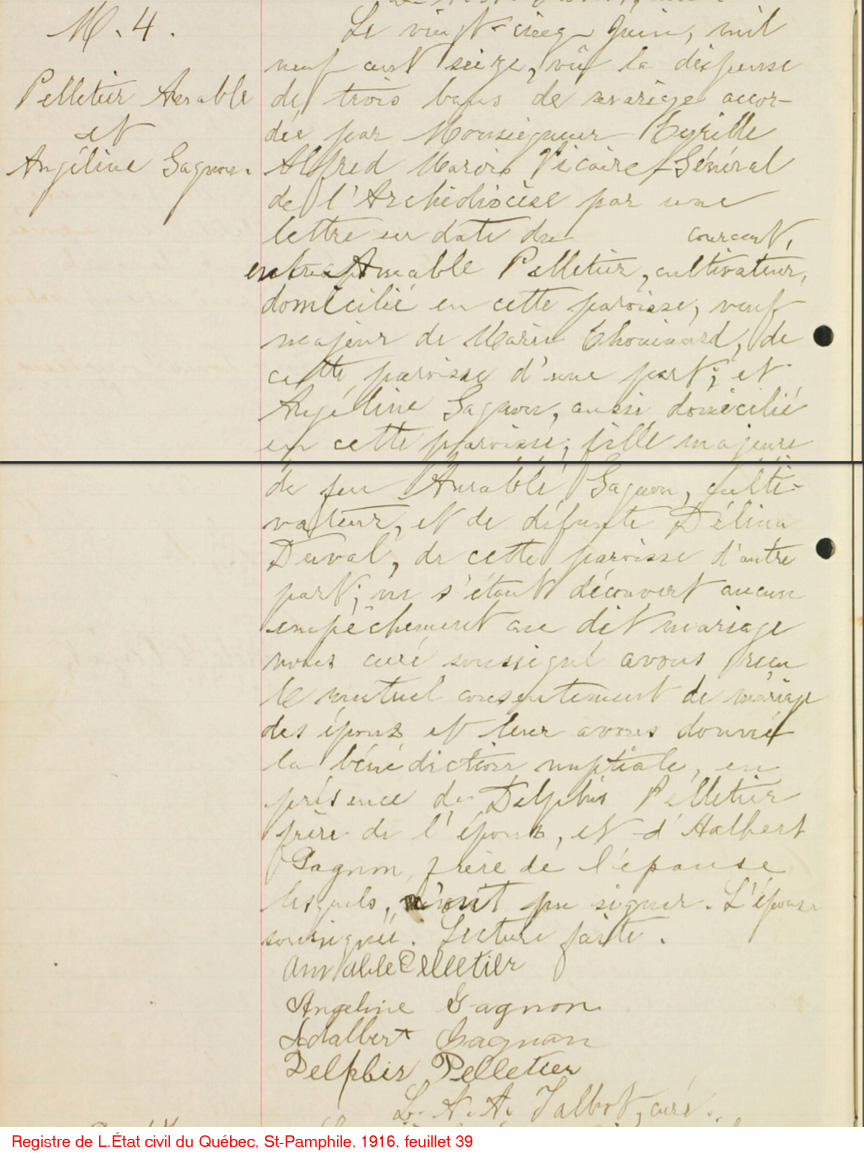 M. 4.
Pelletier Amable
et
Angéline Gagnon.
Le vingt-cinq Juin, mil
neuf cent seize, vu la dispense
de trois bans de mariage accor-
dée par Monseigneur Cyrille
Alfred Marois Vicaire-Général
de l'Archidiocèse par une
lettre en date du courant,
entre Amable Pelletier, cultivateur,
domicilié en cette paroisse, veuf
majeur de Marie Chouinard, de
cette paroisse d'une part; et
Angéline Gagnon, aussi domicilié
en cette paroisse, fille majeure
de feu Amable Gagnon, culti-
vateur, et de défunte Délina
Duval, de cette paroisse d'autre
part; ne s'étant découvert aucun
empêchement au dit mariage
nous curé soussigné avons reçu
le mutuel consentement de mariage
des époux et leur avons donné
la bénédiction nuptiale, en
présence de Delphis Pelletier
frère de l'époux, et d'Adalbert
Gagnon, frère de l'épouse
lesquels, n'ont pu signer. L'épouse
soussignée. Lecture faite.
Amable Pelletier
Angeline Gagnon
Adalbert Gagnon
Delphis Pelletier
L. N. A. Talbot, curé.
Registre de L.État civil du Québec, St-Pamphile, 1916, feuillet 39